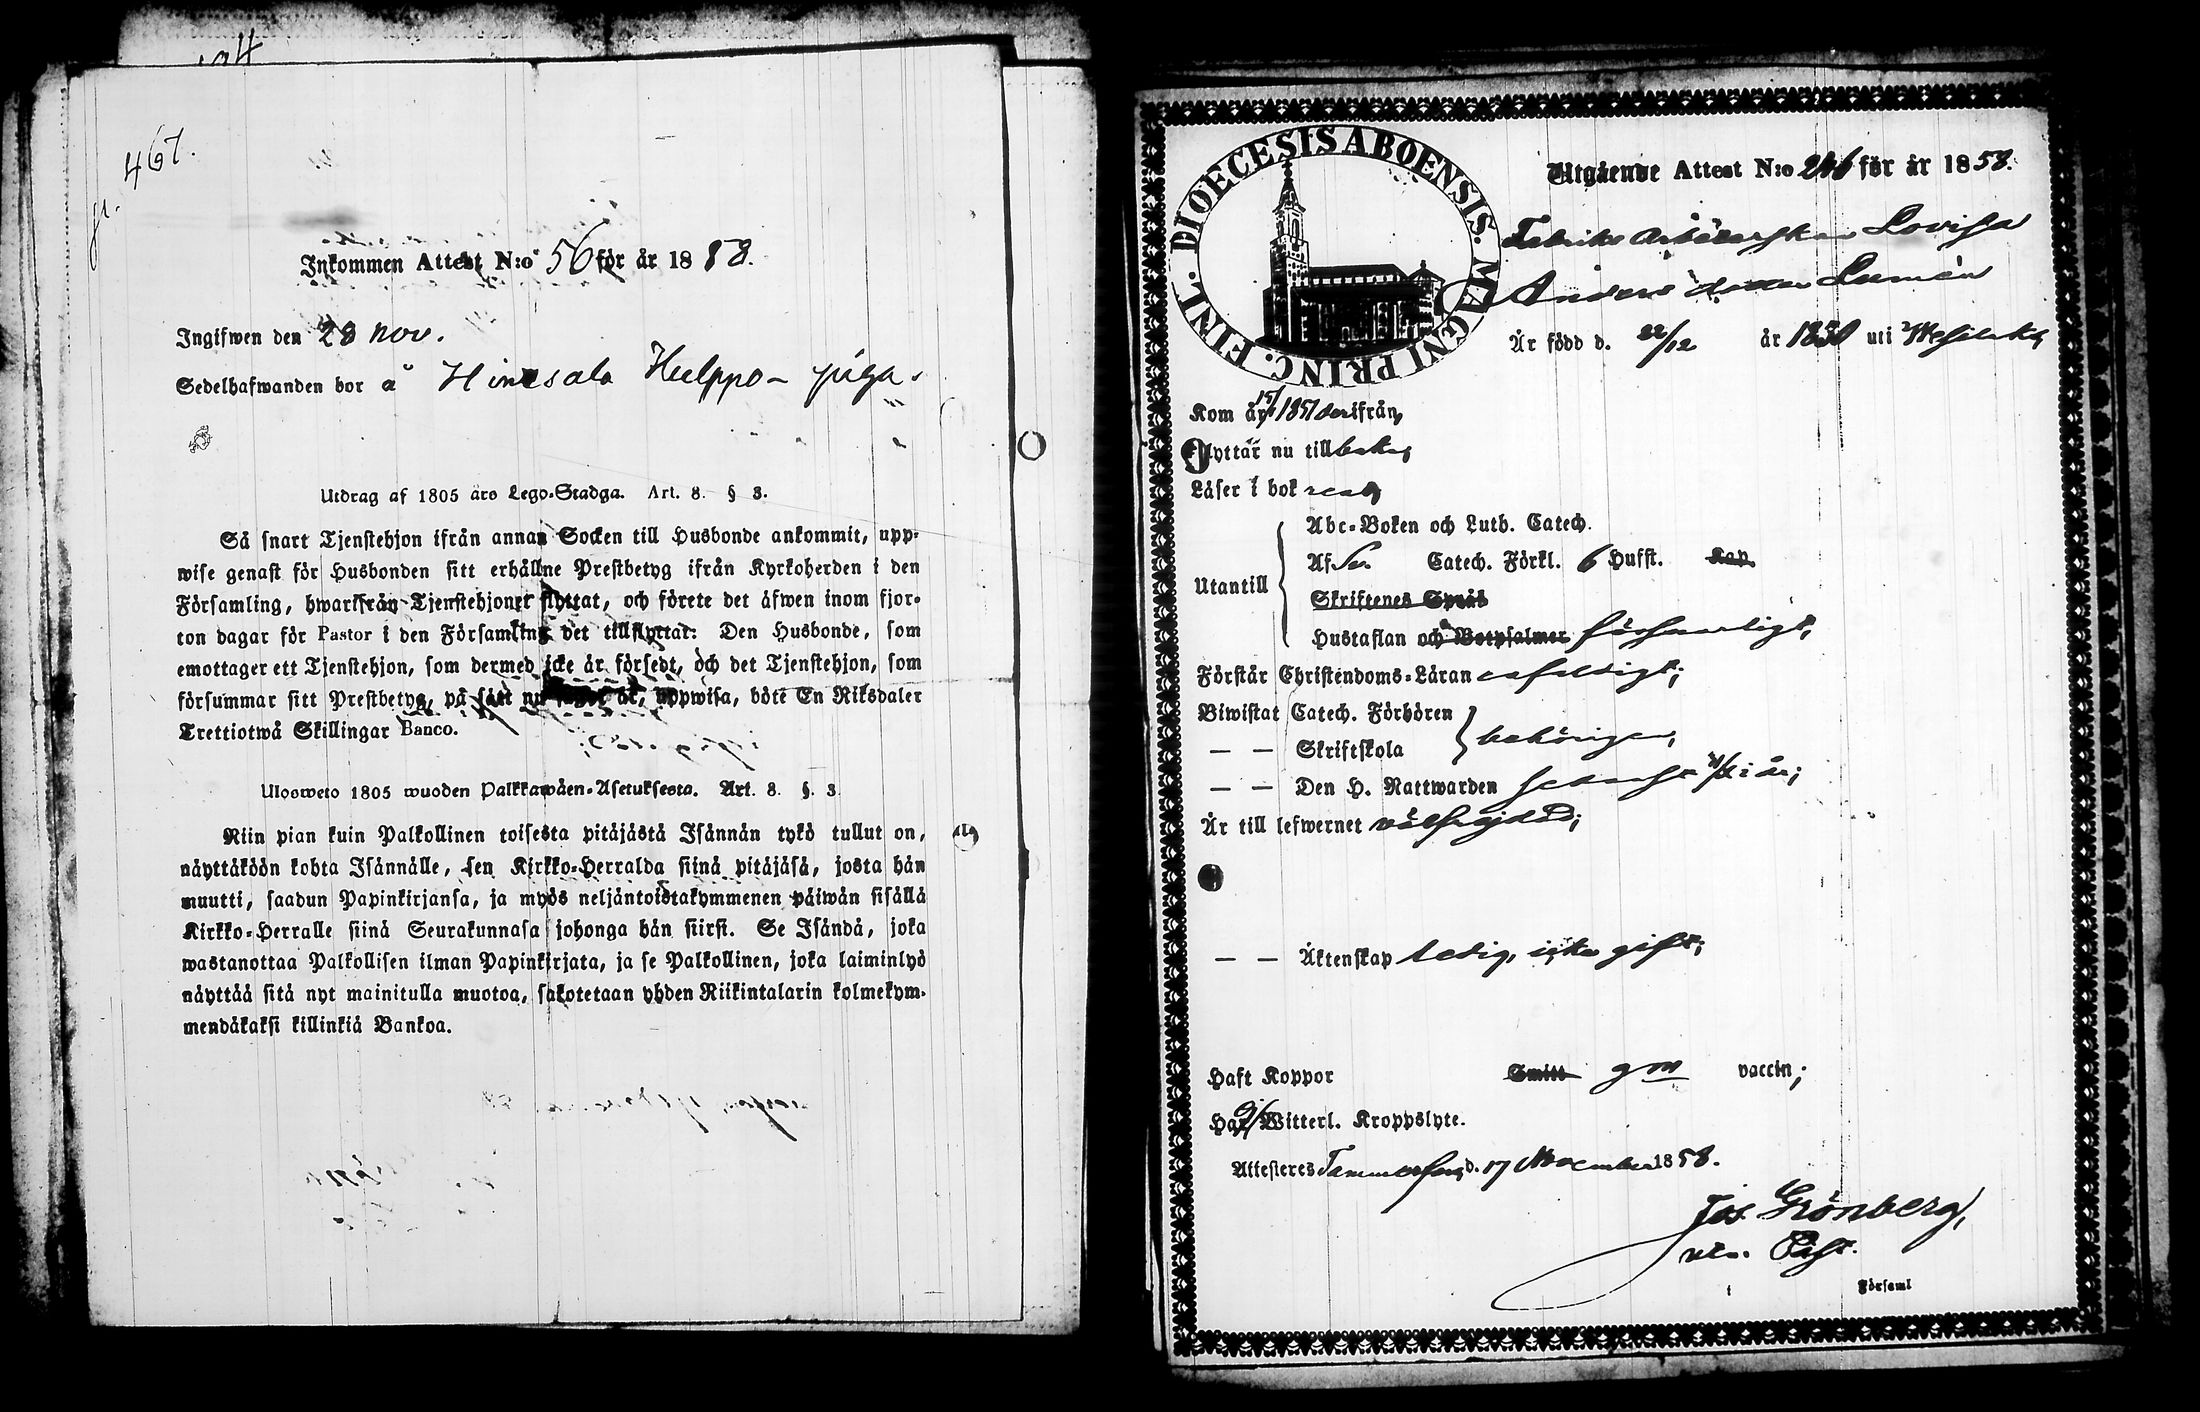 467.
Inkommen Attest N:o 56 för år 1858.
Ingifwen den 28 nov.
Sedelhafwanden bor å Hinsala Hulppo piga.
Utdrag af 1805 års Lego-Stadga. Art. 8. § 3.
Så snart Tjenstehjon ifrån annan Socken till Husbonde ankommit, upp-
wise genast för Husbonden sitt erhållne Prestbetyg ifrån Kyrkoherden i den
Församling, hwarifrån Tjenstehjonet flyttat, och förete det äfwen inom fjor-
ton dagar för Pastor i den Församling det tillflyttat: Den Husbonde, som
emottager ett Tjenstehjon, som dermed icke är försedt, och det Tjenstehjon, som
försummar sitt Prestbetyg, på sätt nu sagdt är, uppwisa, böte En Riksdaler
Trettiotwå Skillingar Banco.
Ulosweto 1805 wuoden Palkkawäen-Asetuksesta. Art. 8. §. 3
Niin pian kuin Palkollinen toisesta pitäjästä Isännän tykö tullut on,
näyttäköön kohta Isännälle, sen Kirkko-Herralda siinä pitäjäsä, josta hän
muutti, saadun Papinkirjansa, ja myös neljäntoistakymmenen päiwän sisällä
Kirkko-Herralle siinä Seurakunnasa johonga hän siirsi. Se Isändä, joka
wastanottaa Palkollisen ilman Papinkirjata, ja se Palkollinen, joka laiminlyö
näyttää sitä nyt mainitulla muotoa, sakotetaan yhden Riikintalarin kolmekym-
mendäkaksi killinkiä Bankoa.
DIOECESIS ABOENSIS. MAGNI PRINC. FINL.
Utgående Attest N:o för år 1858.
Fabriks Arbeterskan Lovisa
Anders dotter Lumén
Är född d. 22/12 år 1830 uti Messuby
Kom år 1857 derifrån,
Flyttar nu tillbaka,
Läser i bok
Utantill
Abc-Boken och Luth. Catech.
Af Sv. Catech. Förkl. 6 Hufst. Kap.
Skriftenes Språk
Hustaflan och Botpsalmer försvarligt,
Förstår Christendoms-Läran enfaldigt;
Biwistat Catech. Förhören
— — Skriftskola
behörigen,
— — Den H. Nattwarden senast i år;
Är till lefwernet välfrejdad;
— — Äktenskap ledig, icke gift;
Haft Koppor Smitt gm vaccin;
Har Witterl. Kroppslyte.
Attesteres Tammerfors d. 17 November 1858.
Jos. Grönberg,
vice Past.
i Församl